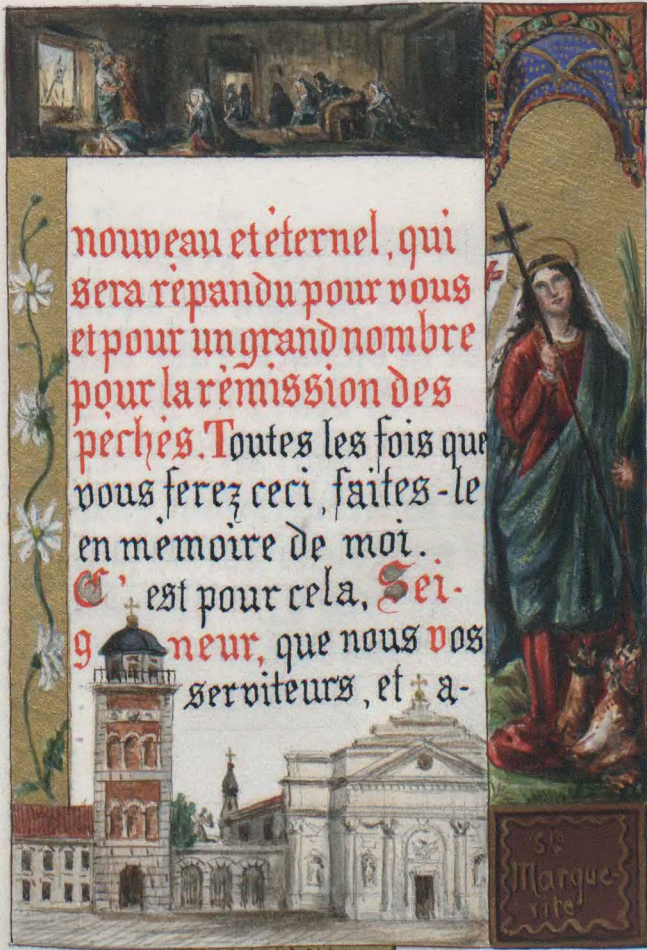 nouveau et èternel, qui
sera rèpandu pour vous
et pour un grand nombre
pour la rèmission des
pèchès. Toutes les fois que
vous ferez ceci, faites-le
en mèmoire de moi.
C'est pour cela, Sei-
gneur, que nous vos
serviteurs, et a-
Ste
Margue-
rite